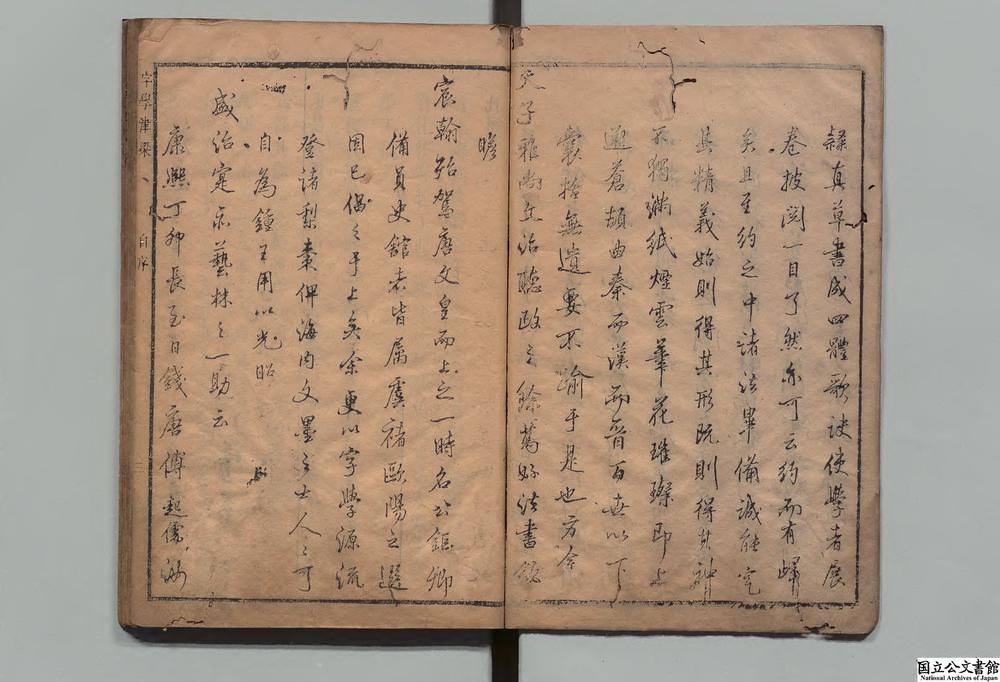 隸真草書成四體歌訣使學者展
卷披閱一目了然亦可云約而有
矣且至約之中諸法畢備誠能究
其精義始則得其形既則得其神
不獨滿紙煙雲筆花璀璨即上
遡蒼頡曲秦而漢而晉百世以下
囊括無遺要不踰乎是也方今
天子雅尚文治聽政之餘篤好法書領
瞻
宸翰殆駕唐文皇而上之一時名公鉅卿
備員史館者皆属虞褚歐陽之選
固已偶之乎上矣余更以字學源流
登諸梨棗俾海内文墨之士人之可
自為鍾王用以光昭
盛治寔亦藝林之一助云
康熙丁卯長至日錢唐傅起儒
字學津梁
自序
国立公文書館
National Archives of Japan